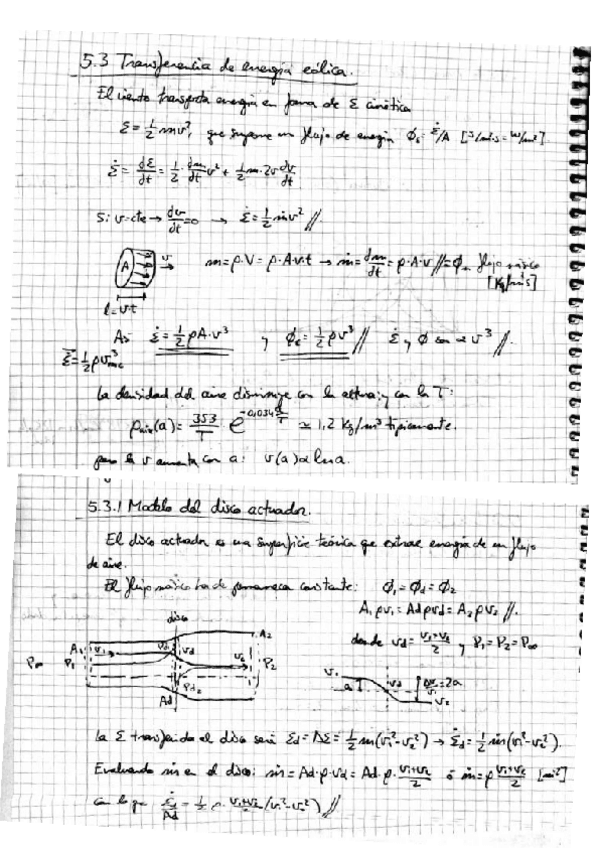 5.3 Transferencia de energía eólica.
El viento transporta energía en forma de Σ cinética
Σ = 1/2 mv², que supone un flujo de energía ϕ_ε = Σ̇/A [J/m²s = W/m²]
Σ̇ = dΣ/dt = 1/2 · dm/dt v² + 1/2 m · 2v dv/dt
Si v=cte → dv/dt = 0 → Σ̇ = 1/2 ṁv² //
A v → m = ρ·V = ρ·A·v·t → ṁ = dm/dt = ρ·A·v // = ϕ_m flujo másico
[Kg/s]
l = v·t
Así Σ̇ = 1/2 ρA·v³ y ϕ_ε = 1/2 ρv³ // Σ̇ y ϕ son ∝ v³ //.
La densidad del aire disminuye con la altura y con la T:
ρ_aire(a) = 353/T e^(-0,034 a/T) ≃ 1,2 Kg/m³ típicamente.
pero la v aumenta con a: v(a) ∝ ln a.
5.3.1 Modelo del disco actuador.
El disco actuador es una superficie teórica que extrae energía de un flujo
de aire.
El flujo másico ha de permanecer constante: ϕ₁ = ϕd = ϕ₂
A₁ρv₁ = Adρvd = A₂ρv₂ //.
disco
donde vd = (v₁+v₂)/2 y P₁ = P₂ = P∞
P∞ A₁ P₁ v₁ vd Ad Pd₂ v₂ A₂ P₂
v₁ a vd v₂ = 2a
La Σ transferida al disco será Σd = ΔΣ = 1/2 m(v₁²-v₂²) → Σ̇d = 1/2 ṁ(v₁²-v₂²).
Evaluando ṁ en el disco: ṁ = Ad·ρ·vd = Ad·ρ·(v₁+v₂)/2 ó ṁ = ρ (v₁+v₂)/2
con lo que Σ̇d/Ad = 1/2 ρ · (v₁+v₂)/2 (v₁²-v₂²) //